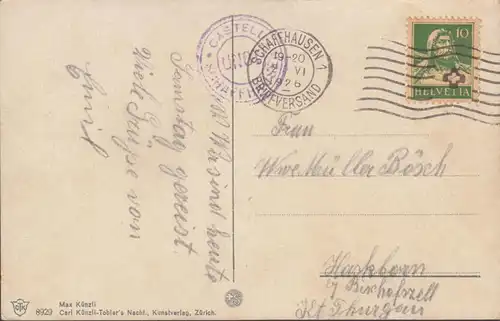 SCHAFFHAUSEN 1
19-20
VI
1926
BRIEFVERSAND
CASTELL
10
HELVETIA
Wir sind heute
Samstag gereist.
Viele Grüsse von
Emil
Frau
Wwe. Müller Bösch
Haslborn
b/ Bischofzell
Kt. Thurgau
Max Künzli
8929 Carl Künzli-Tobler's Nachf., Kunstverlag, Zürich.